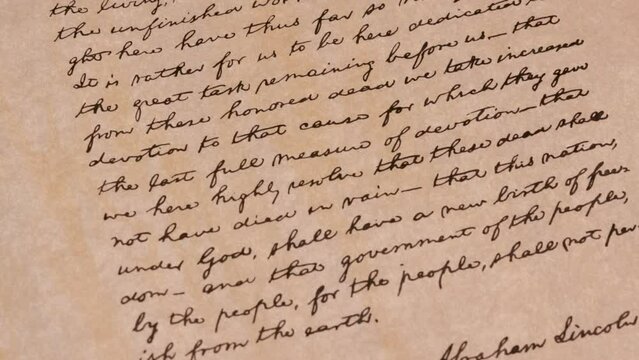 the living,
the unfinished wor
ght here have thus far so n
It is rather for us to be here dedicated
the great task remaining before us—that
from these honored dead we take increased
devotion to that cause for which they gave
the last full measure of devotion—that
we here highly resolve that these dead shall
not have died in vain—that this nation,
under God, shall have a new birth of free-
dom—and that government of the people,
by the people, for the people, shall not per-
ish from the earth.
Abraham Lincoln